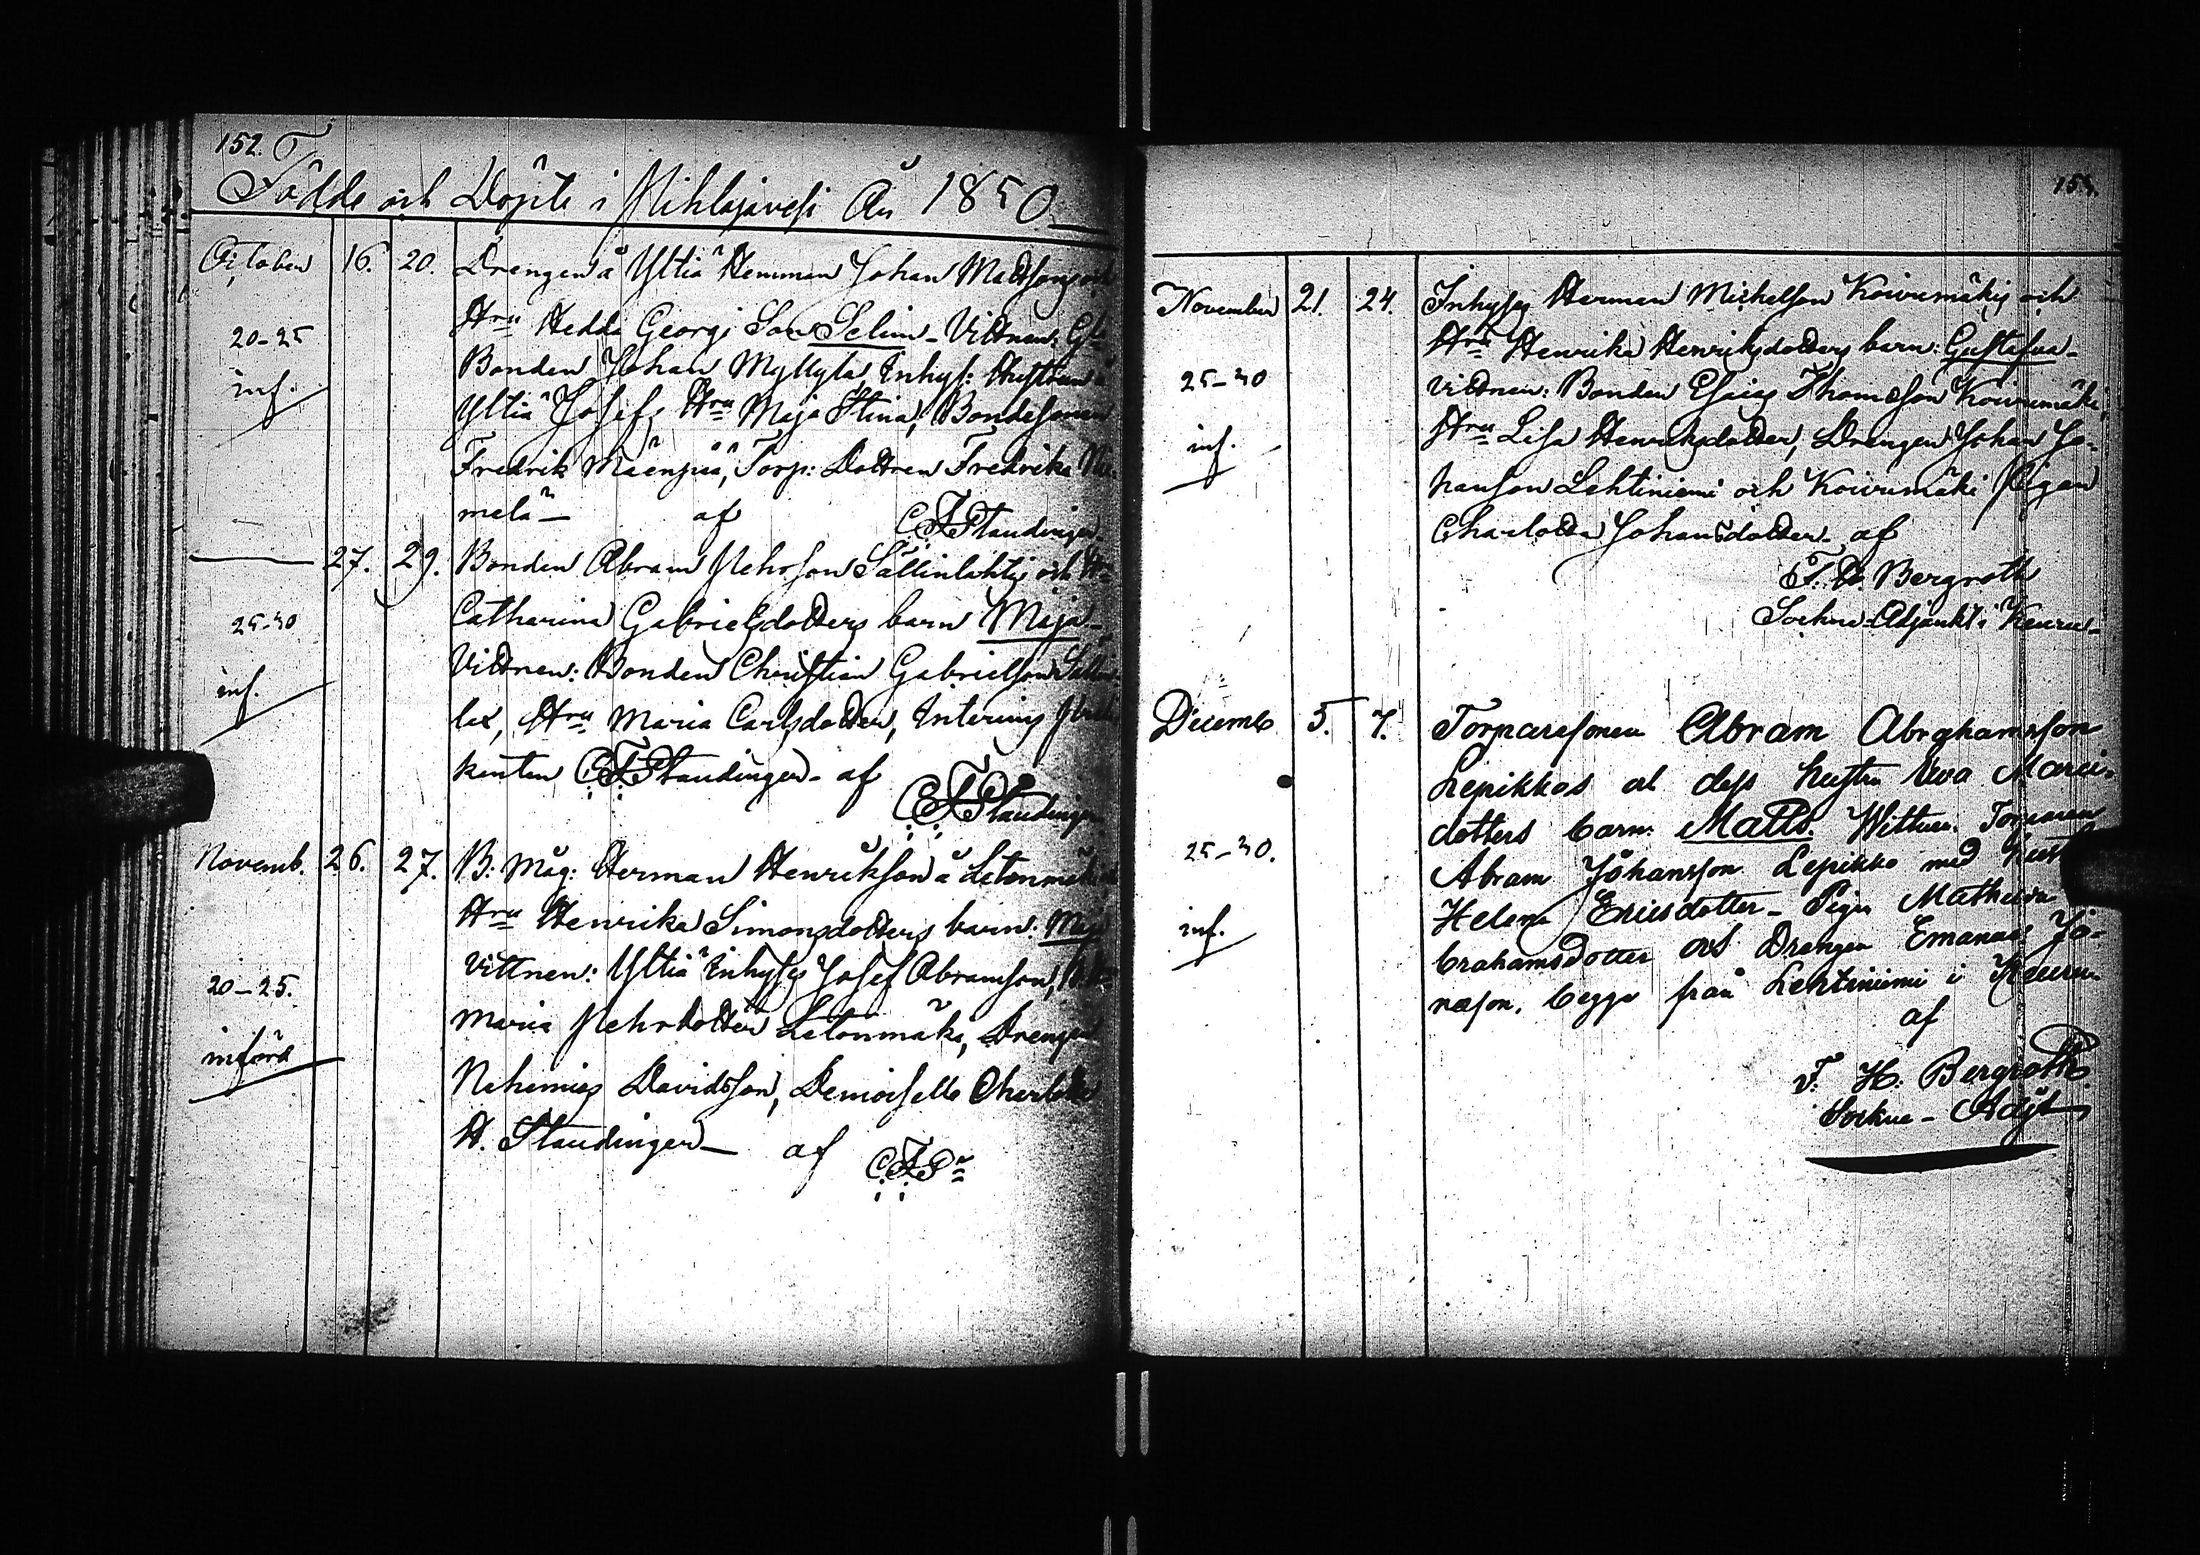 152.
Födde och Döpte i Pihlajavesi År 1850
October 16. 20. Drengen å Yltiä Hemman Johan Mattsons och
Hru Hedda Georgi Son Selim - Vittnen: Gl
20-25 Bonden Johan Myllylä, Inhys: Hustrun å
inf. Yltiä Josefs Hru Maja Stina, Bondesonen
Fredrik Mäenpää, Torp: Dottren Fredrika Nie
melä - af CFStaudinger
27. 29. Bonden Abram Pehrson Sällinlahtis och H
Catharina Gabrielsdotters barn Maja -
25-30 Vittnen: Bonden Christian Gabrielson Sällin
inf. lax, Hru Maria Carlsdotter, Interims Predi
kanten CFStaudinger - af
CFStaudinger
Novemb. 26. 27. B: Måg: Herman Henrikson å Letonmäki
Hru Henrika Simonsdotters barn: Maja
20-25. Vittnen: Yltiä Inhyses Josef Abramson,
Maria Pehrsdotter Letonmäki, Drengen
införd Nehemias Davidsson, Demoiselle Charlotta
H. Staudinger - af CFSr
November 21. 24. Inhyses Herman Michelson Koivumäkis och
Hru Henrika Henriksdotters barn: Gustafva -
25-30 Vittnen: Bonden Esaias Thomasson Koivumäki,
inf. Hru Lisa Henriksdotter, Drengen Johan Jo-
hanson Lehtiniemi och Koivumäki Pigan
Charlotta Johansdotter - af
F. H. Bergroth
Sockne-Adjunkt i Keuru -
Decemb 5. 7. Torparesonen Abram Abrahamsson
Lepikkos ol dess hustru Eva Marii-
dotters barn: Matts. Wittnen. Torparen
25-30. Abram Johansson Lepikko med hust
Helena Ericsdotter - Pigan Mathilda
inf. brahamsdotter och Drengen Emanuel Jo-
nason. begge från Lehtiniemi i Keuru
af
F. H. Bergroth
Sockne - Adjt